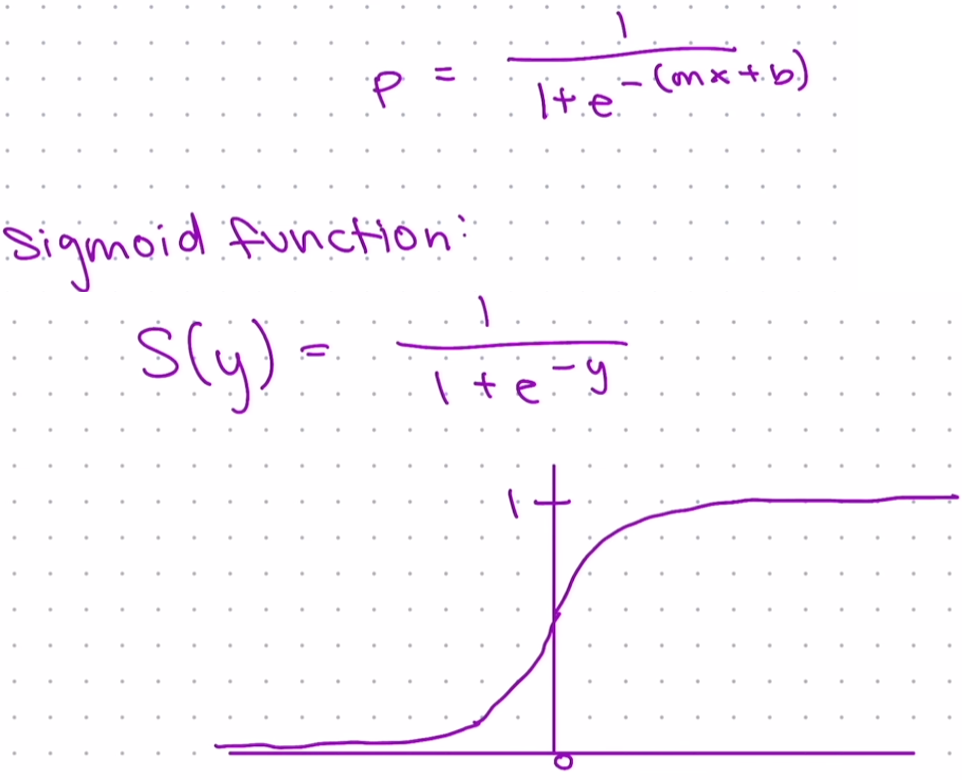 p = 1 / 1+e^-(mx+b)
Sigmoid function:
S(y) = 1 / 1+e^-y
1
0